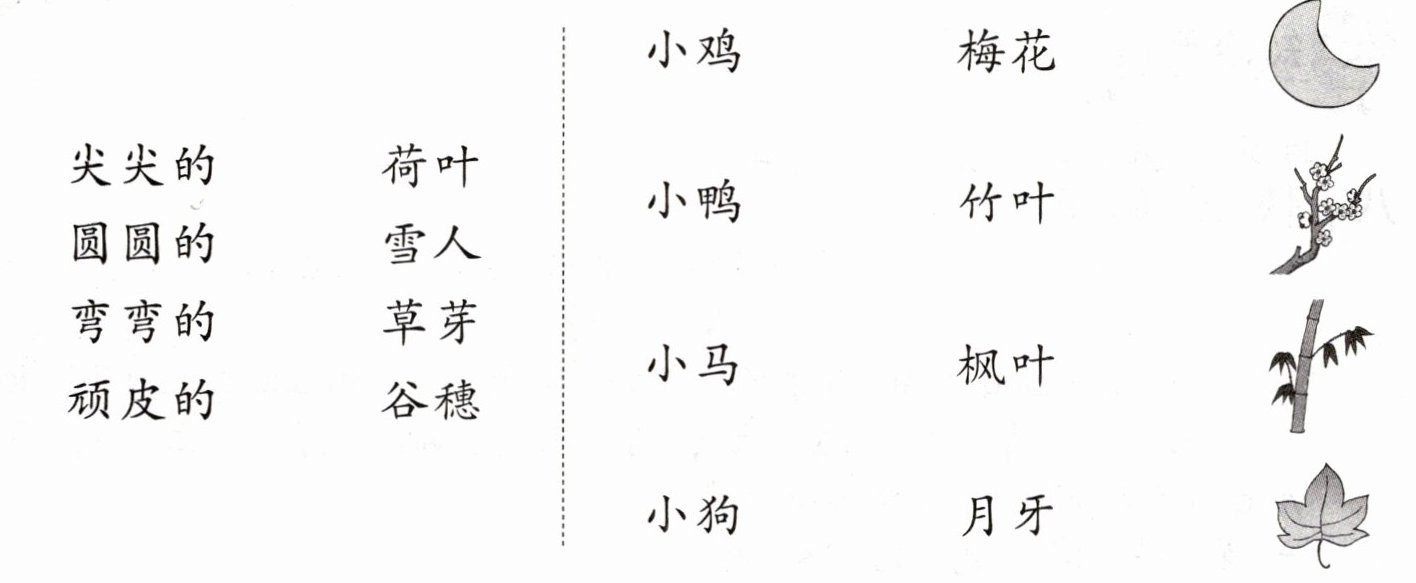 尖尖的 荷叶
圆圆的 雪人
弯弯的 草芽
顽皮的 谷穗
小鸡 梅花
小鸭 竹叶
小马 枫叶
小狗 月牙